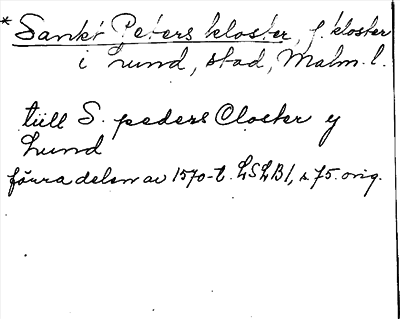 * Sankt Peters kloster, f. kloster
i Lund, stad, Malm. l.
tiill S. peders Closter y
Lund
förra delen av 1570-t. LSLB1, s. 75. orig.